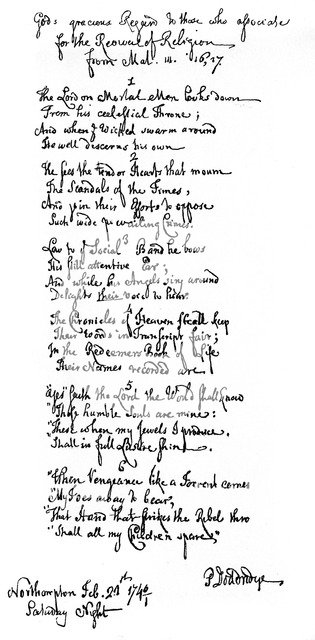 Gods gracious Regard to those who associate
for the Revival of Religion
from Mal. iii. 16, 17
1
The Lord on Mortal Men looks down
From his cœlestial Throne;
And when ye Wicked swarm around
He well discerns his own
2
He sees the tender Hearts that mourn
The Scandals of the Times;
And join their Efforts to oppose
Such wide prevailing Crimes.
3
Low to ye Social Band he bows
His still attentive Ear;
And while his Angels sing around
Delights their voice to hear.
4
The Chronicles of Heaven shall keep
Their Words in Transcript fair;
In the Redeemers Book of Life
Their Names recorded are
5
"Yes" saith the Lord the World shall know
"These humble Souls are mine:
"These when my Jewels I produce.
"Shall in full Lustre shine
6
"When Vengeance like a Torrent comes
"My Foes away to bear,
"That Hand that strikes the Rebel thro
"Shall all my Children spare."
P Doddridge
Northampton Feb. 21st 1740/1
Saturday Night